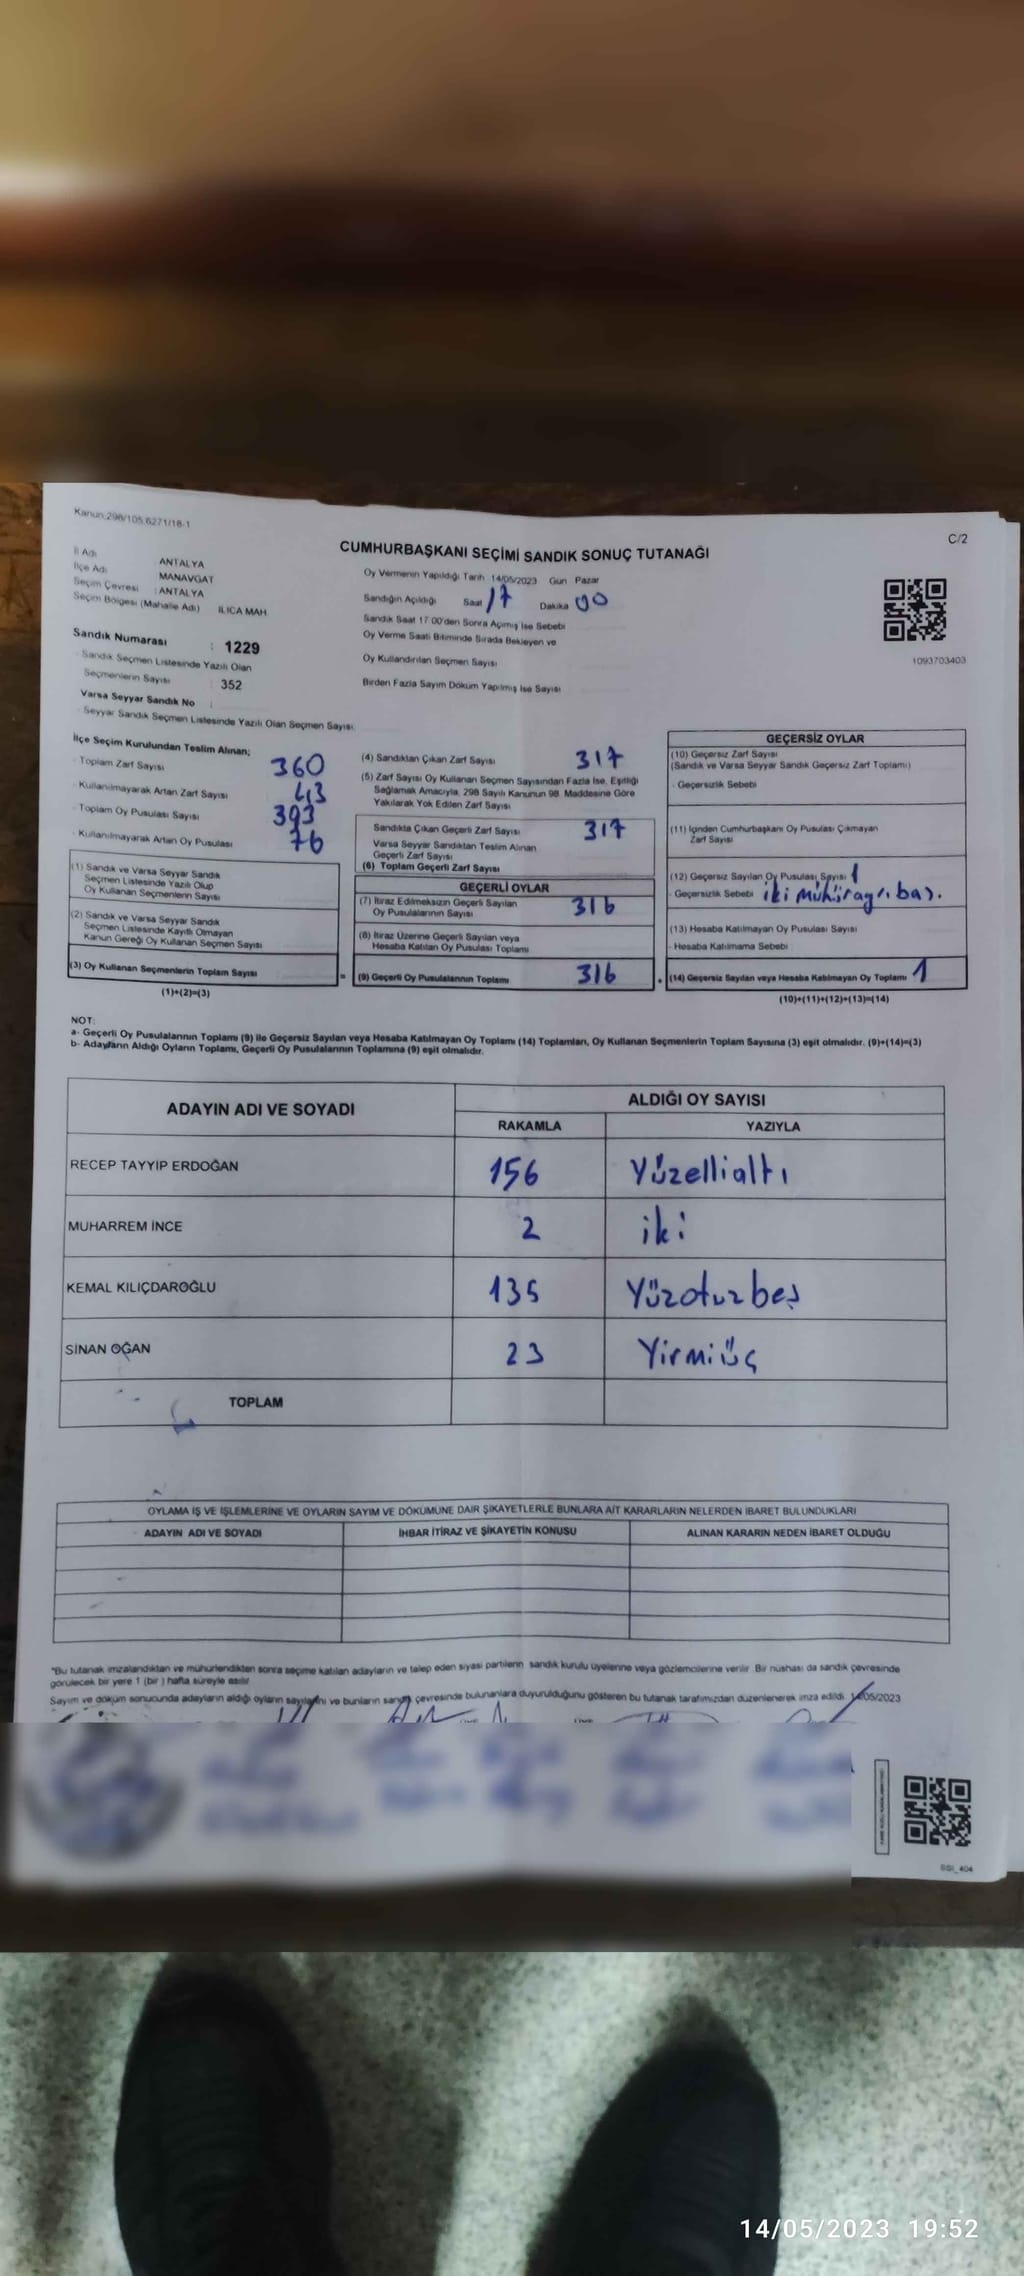 Kanun:298/105,6271/18-1
C/2
CUMHURBAŞKANI SEÇİMİ SANDIK SONUÇ TUTANAĞI
İl Adı : ANTALYA
İlçe Adı : MANAVGAT
Seçim Çevresi : ANTALYA
Seçim Bölgesi (Mahalle Adı) ILICA MAH.
Sandık Numarası : 1229
- Sandık Seçmen Listesinde Yazılı Olan
Seçmenlerin Sayısı : 352
Varsa Seyyar Sandık No :
- Seyyar Sandık Seçmen Listesinde Yazılı Olan Seçmen Sayısı:
Oy Vermenin Yapıldığı Tarih 14/05/2023 Gün Pazar
Sandığın Açıldığı Saat 17 Dakika 00
Sandık Saat 17:00'den Sonra Açılmış İse Sebebi
Oy Verme Saati Bitiminde Sırada Bekleyen ve
Oy Kullandırılan Seçmen Sayısı
Birden Fazla Sayım Döküm Yapılmış İse Sayısı
1093703403
İlçe Seçim Kurulundan Teslim Alınan;
- Toplam Zarf Sayısı 360
- Kullanılmayarak Artan Zarf Sayısı 43
- Toplam Oy Pusulası Sayısı 393
- Kullanılmayarak Artan Oy Pusulası 76
(1) Sandık ve Varsa Seyyar Sandık
Seçmen Listesinde Yazılı Olup
Oy Kullanan Seçmenlerin Sayısı
(2) Sandık ve Varsa Seyyar Sandık
Seçmen Listesinde Kayıtlı Olmayan
Kanun Gereği Oy Kullanan Seçmen Sayısı
(3) Oy Kullanan Seçmenlerin Toplam Sayısı
(1)+(2)=(3)
=
(4) Sandıktan Çıkan Zarf Sayısı 317
(5) Zarf Sayısı Oy Kullanan Seçmen Sayısından Fazla İse, Eşitliği
Sağlamak Amacıyla, 298 Sayılı Kanunun 98. Maddesine Göre
Yakılarak Yok Edilen Zarf Sayısı
Sandıkta Çıkan Geçerli Zarf Sayısı 317
Varsa Seyyar Sandıktan Teslim Alınan
Geçerli Zarf Sayısı
(6) Toplam Geçerli Zarf Sayısı
GEÇERLİ OYLAR
(7) İtiraz Edilmeksizin Geçerli Sayılan
Oy Pusulalarının Sayısı 316
(8) İtiraz Üzerine Geçerli Sayılan veya
Hesaba Katılan Oy Pusulası Toplamı
(9) Geçerli Oy Pusulalarının Toplamı 316
+
GEÇERSİZ OYLAR
(10) Geçersiz Zarf Sayısı
(Sandık ve Varsa Seyyar Sandık Geçersiz Zarf Toplamı)
- Geçersizlik Sebebi
(11) İçinden Cumhurbaşkanı Oy Pusulası Çıkmayan
Zarf Sayısı
(12) Geçersiz Sayılan Oy Pusulası Sayısı 1
- Geçersizlik Sebebi iki mühür ayrı bas.
(13) Hesaba Katılmayan Oy Pusulası Sayısı
- Hesaba Katılmama Sebebi
(14) Geçersiz Sayılan veya Hesaba Katılmayan Oy Toplamı 1
(10)+(11)+(12)+(13)=(14)
NOT:
a- Geçerli Oy Pusulalarının Toplamı (9) ile Geçersiz Sayılan veya Hesaba Katılmayan Oy Toplamı (14) Toplamları, Oy Kullanan Seçmenlerin Toplam Sayısına (3) eşit olmalıdır. (9)+(14)=(3)
b- Adayların Aldığı Oyların Toplamı, Geçerli Oy Pusulalarının Toplamına (9) eşit olmalıdır.
ADAYIN ADI VE SOYADI
ALDIĞI OY SAYISI
RAKAMLA YAZIYLA
RECEP TAYYİP ERDOĞAN 156 Yüzellialtı
MUHARREM İNCE 2 iki
KEMAL KILIÇDAROĞLU 135 Yüzotuzbeş
SİNAN OĞAN 23 Yirmiüç
TOPLAM
OYLAMA İŞ VE İŞLEMLERİNE VE OYLARIN SAYIM VE DÖKÜMÜNE DAİR ŞİKAYETLERLE BUNLARA AİT KARARLARIN NELERDEN İBARET BULUNDUKLARI
ADAYIN ADI VE SOYADI İHBAR İTİRAZ VE ŞİKAYETİN KONUSU ALINAN KARARIN NEDEN İBARET OLDUĞU
"Bu tutanak imzalandıktan ve mühürlendikten sonra seçime katılan adayların ve talep eden siyasi partilerin sandık kurulu üyelerine veya gözlemcilerine verilir. Bir nüshası da sandık çevresinde
görülecek bir yere 1 (bir) hafta süreyle asılır.
Sayım ve döküm sonucunda adayların aldığı oyların sayılarını ve bunların sandık çevresinde bulunanlara duyurulduğunu gösteren bu tutanak tarafımızdan düzenlenerek imza edildi. 14/05/2023
SSI_404
14/05/2023 19:52